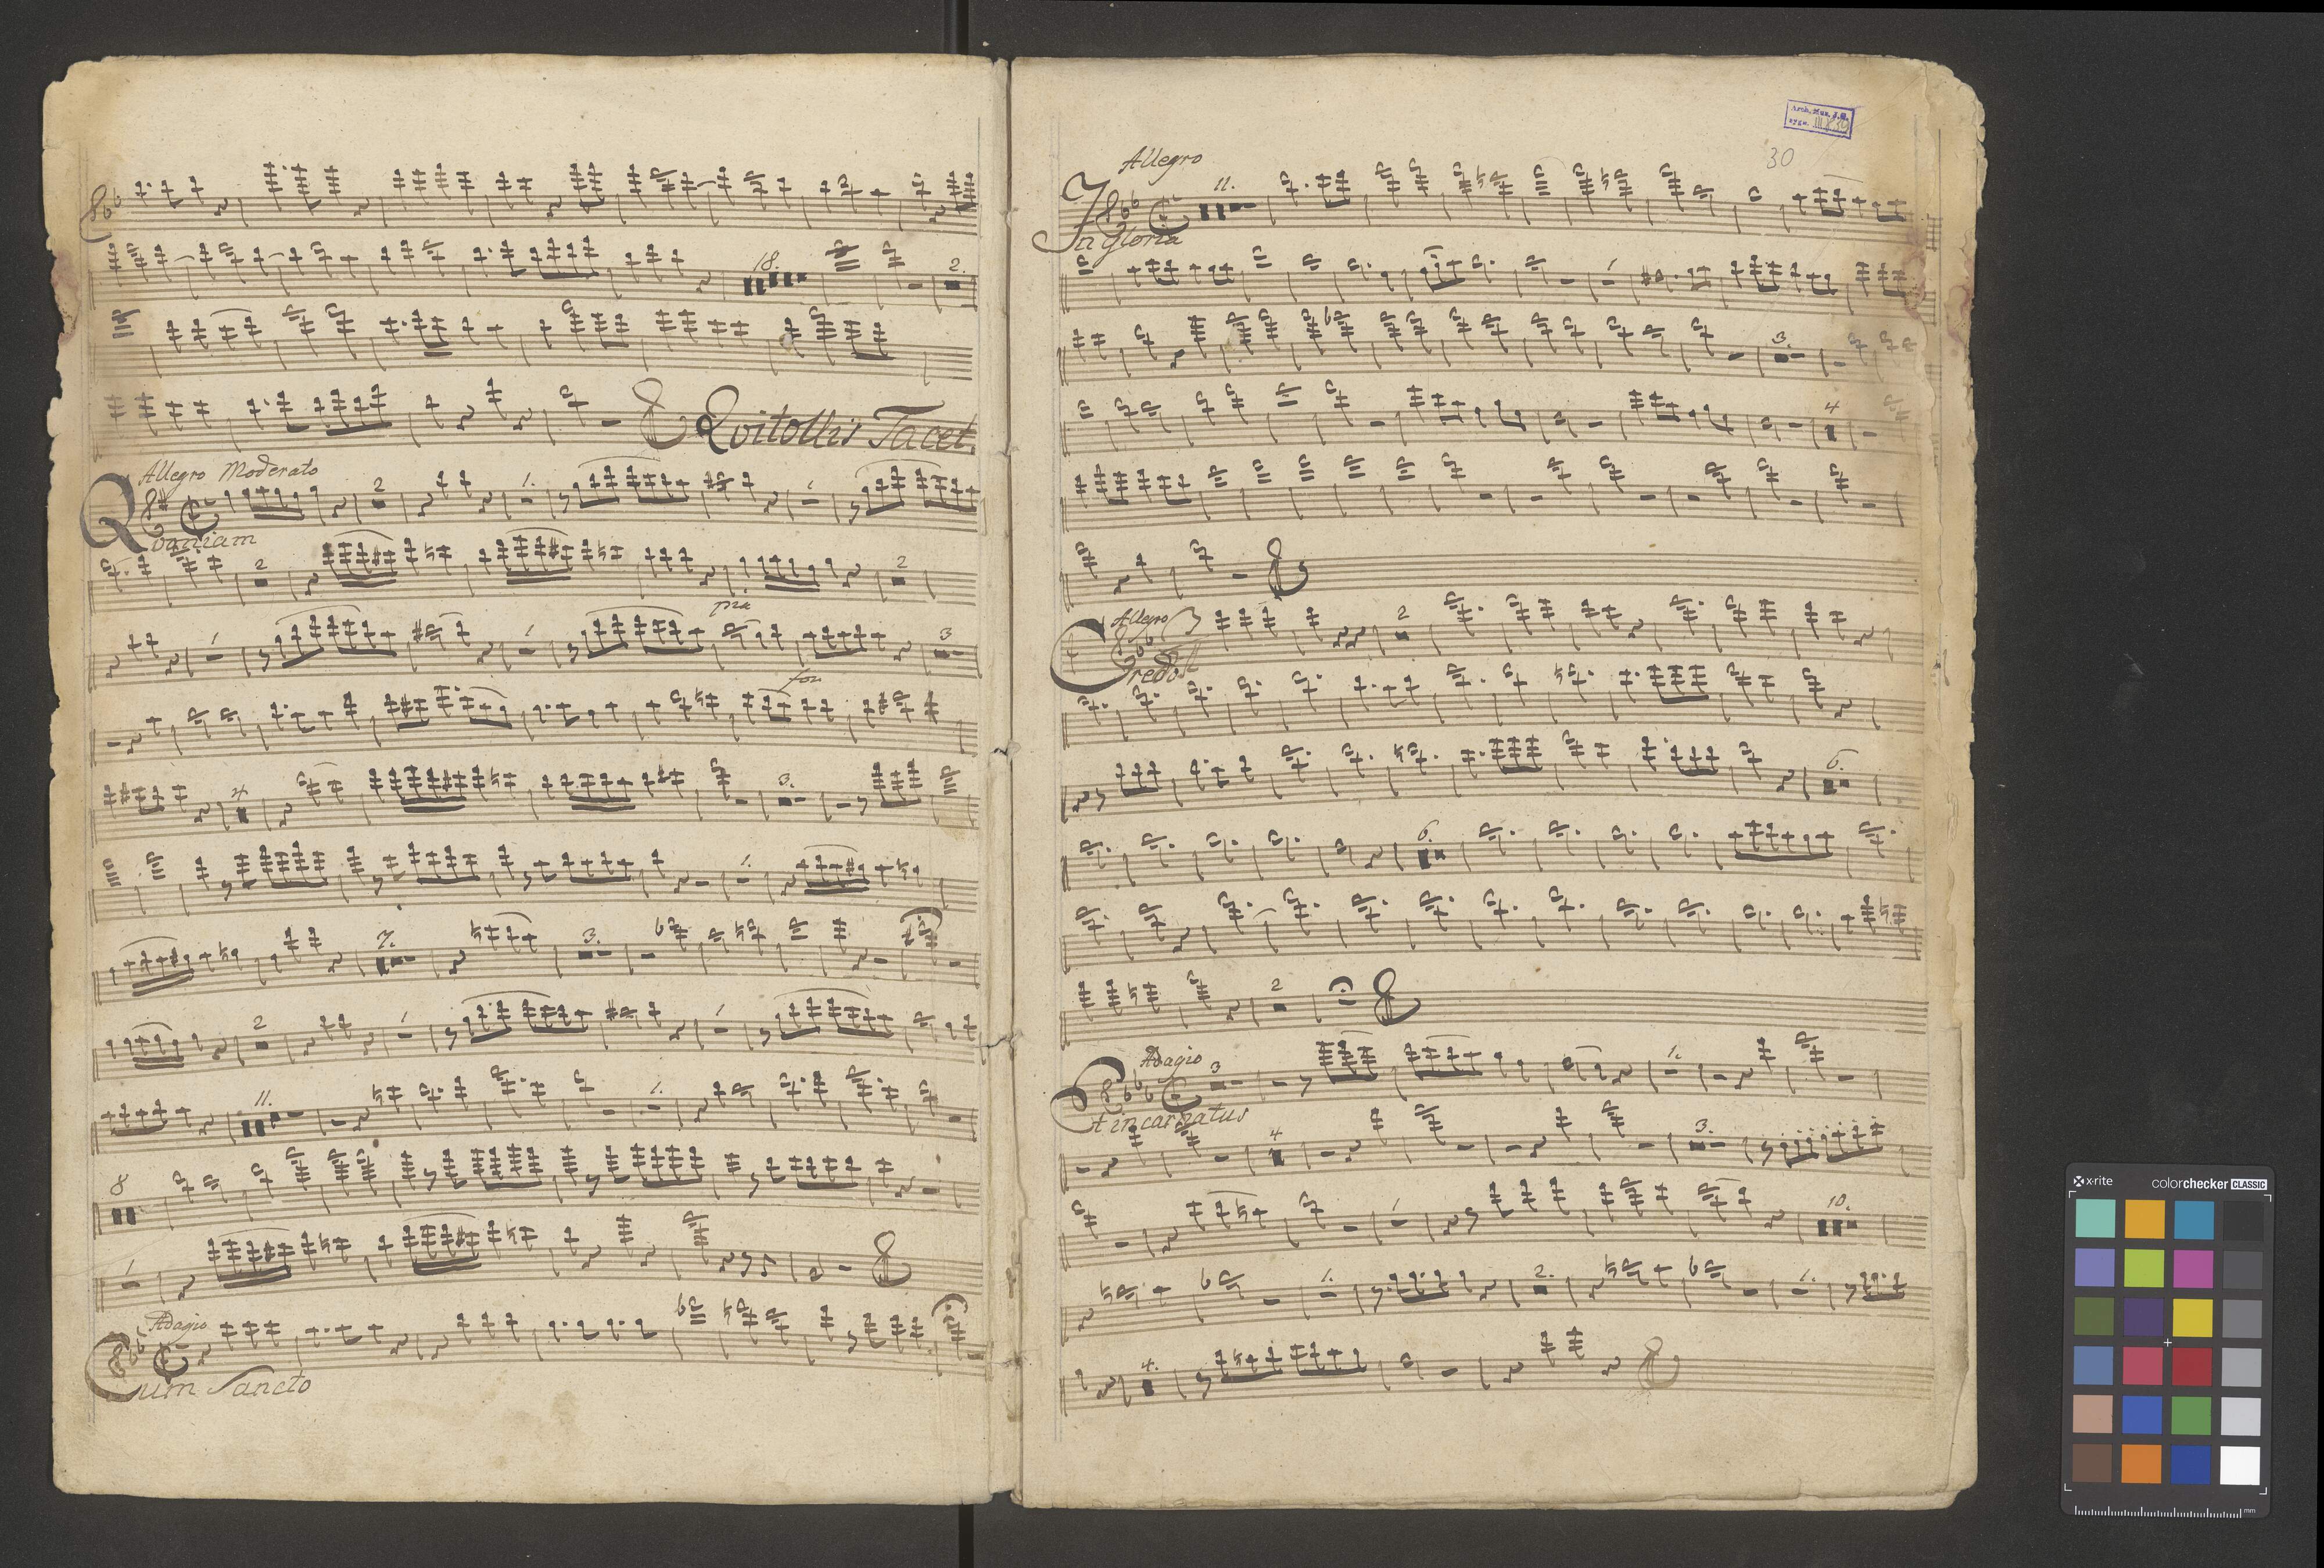 18.
2.
Qvitollis Tacet.
Allegro Moderato
2
1.
1
Qvoniam
2
2
pia
1
1
3
for
4
3.
1.
7.
3.
2
1
1
11.
1.
8
1
Adagio
Cum Sancto
Arch. Mus. J.H.
sygn. III
30
Allegro
11.
In gloria
1
3.
4
Allegro
3
2
Credo
6.
6.
2
Adagio
3
1.
Et incarnatus
4
3.
1
10.
1.
2.
1.
4.
x-rite
colorchecker CLASSIC
mm